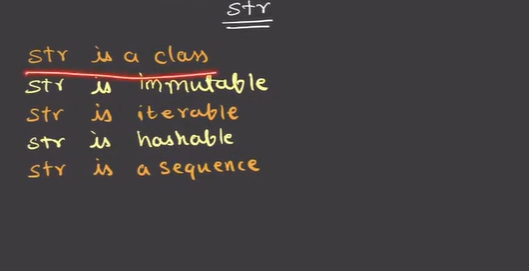 str
str is a class
str is immutable
str is iterable
str is hashable
str is a sequence